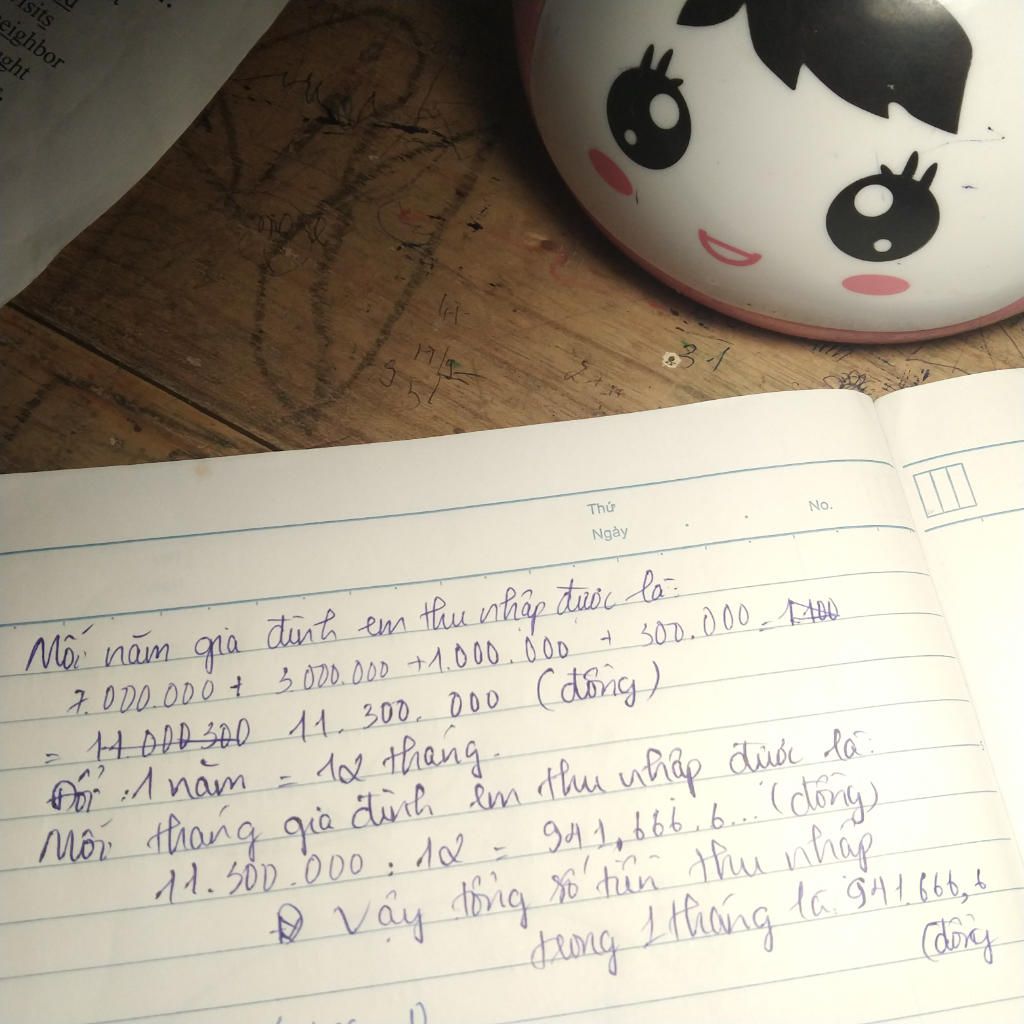 isits
eighbor
ght
31
Thứ
No.
Ngày
Mỗi năm gia đình em thu nhập được là:
7.000.000 + 3.000.000 + 1.000.000 + 300.000 = 1.100
= 11.000.300 11.300.000 (đồng)
Đổi: 1 năm = 12 tháng.
Mỗi tháng gia đình em thu nhập được là:
11.300.000 : 12 = 941,666.6... (đồng)
Vậy tổng số tiền thu nhập
trong 1 tháng là 941.666,6
(đồng